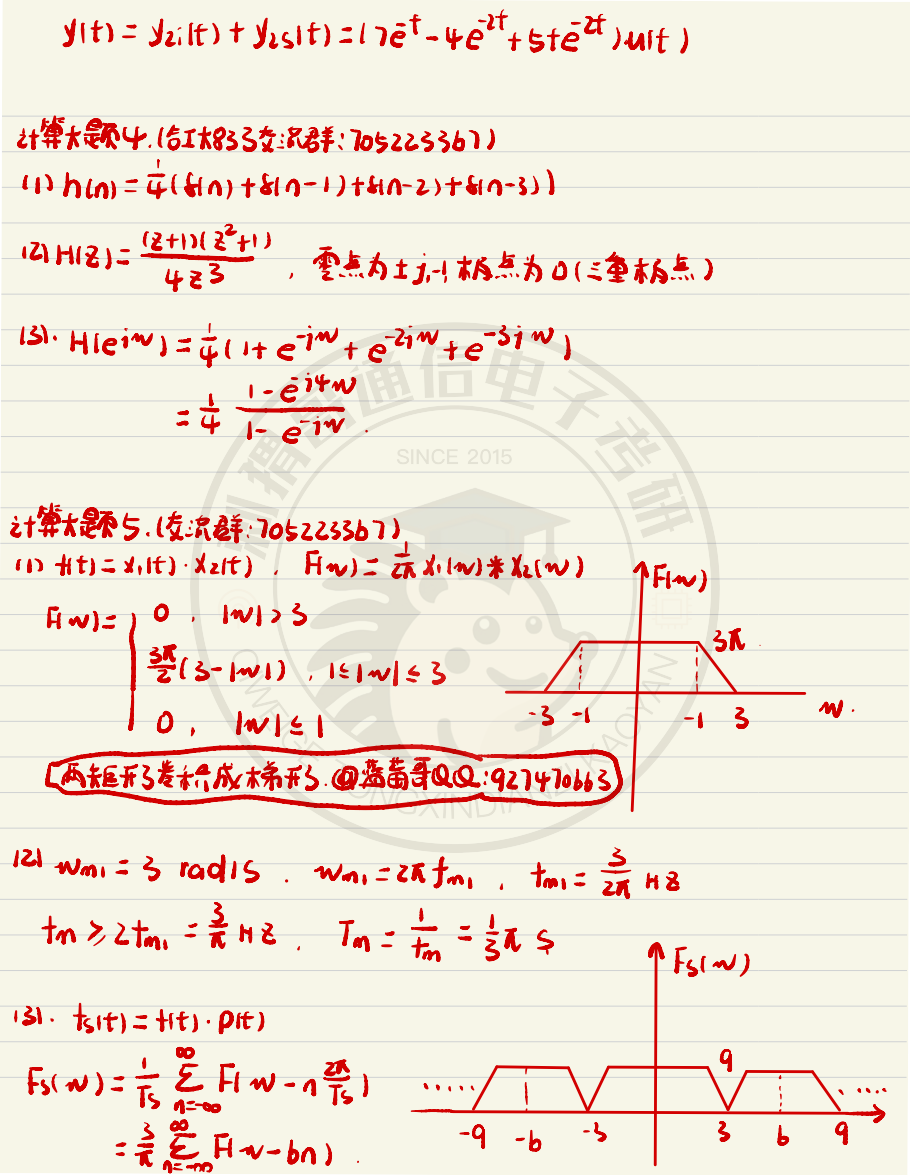 y(t) = yzi(t) + yzs(t) = (7e^{-t} - 4e^{-2t} + 5te^{-2t})u(t)
计算大题4.(哈工大833交流群:705223367)
(1) h(n) = 1/4(δ(n)+δ(n-1)+δ(n-2)+δ(n-3))
(2) H(z) = (z+1)(z²+1)/4z³ , 零点为±j,-1 极点为0(三重极点)
(3). H(e^{jw}) = 1/4(1+e^{-jw}+e^{-2jw}+e^{-3jw})
= 1/4 (1-e^{-j4w})/(1-e^{-jw}).
计算大题5.(交流群:705223367)
(1) f(t) = x₁(t)·x₂(t) , F(w) = 1/2π X₁(w)*X₂(w)
F(w)
F(w) = { 0 , |w|>3
3π
3π/2(3-|w|) , 1≤|w|≤3
-3 -1 -1 3 w.
0 , |w|≤1
两矩形卷积成梯形.@蓝菌哥QQ:927470663
(2) wm₁ = 3 rad/s . wm₁ = 2πfm₁ , fm₁ = 3/2π Hz
fm ≥ 2fm₁ = 3/π Hz . Tm = 1/fm = 1/3 π s
Fs(w)
(3). fs(t) = f(t)·p(t)
9
Fs(w) = 1/Ts ∑_{n=-∞}^{∞} F(w-n 2π/Ts)
...... ......
-9 -6 -3 3 6 9
= 3/π ∑_{n=-∞}^{∞} F(w-6n).
通信电子考研
SINCE 2015